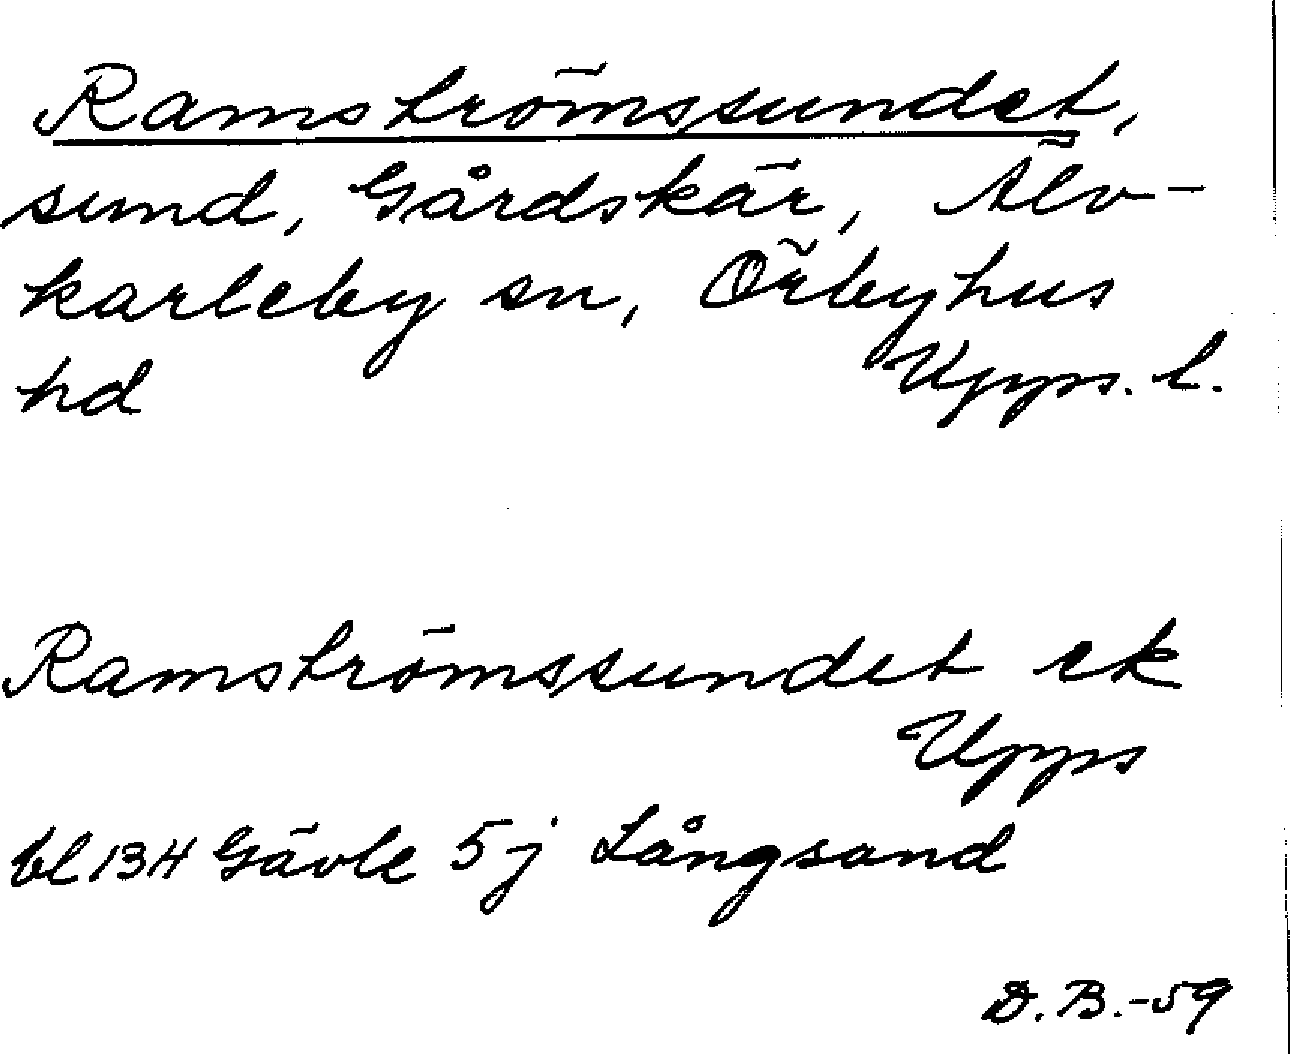 Ramströmssundet,
sund, Gårdskär, Älv-
karleby sn, Örbyhus
hd Upps. l.
Ramströmssundet ek
Upps
bl 13H Gävle 5j Långsand
D.B.-59